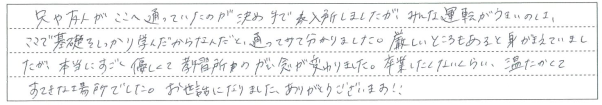 兄や友人がここへ通っていたのが決め手で入所しましたが、みんな運転がうまいのは、
ココで基礎をしっかり学んだからなんだと、通ってて分かりました。厳しいところもあると身がまえていまし
たが、本当にすごく優しくて教習所の概念が変わりました。卒業したくないくらい、温たかくて
すてきな場所でした。お世話になりました、ありがとうございます!!